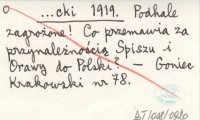 o ...cki 1919. Podhale
zagrożone! Co przemawia za
przynależnością Spiszu i
Orawy do Polski? – Goniec
Krakowski nr 78.